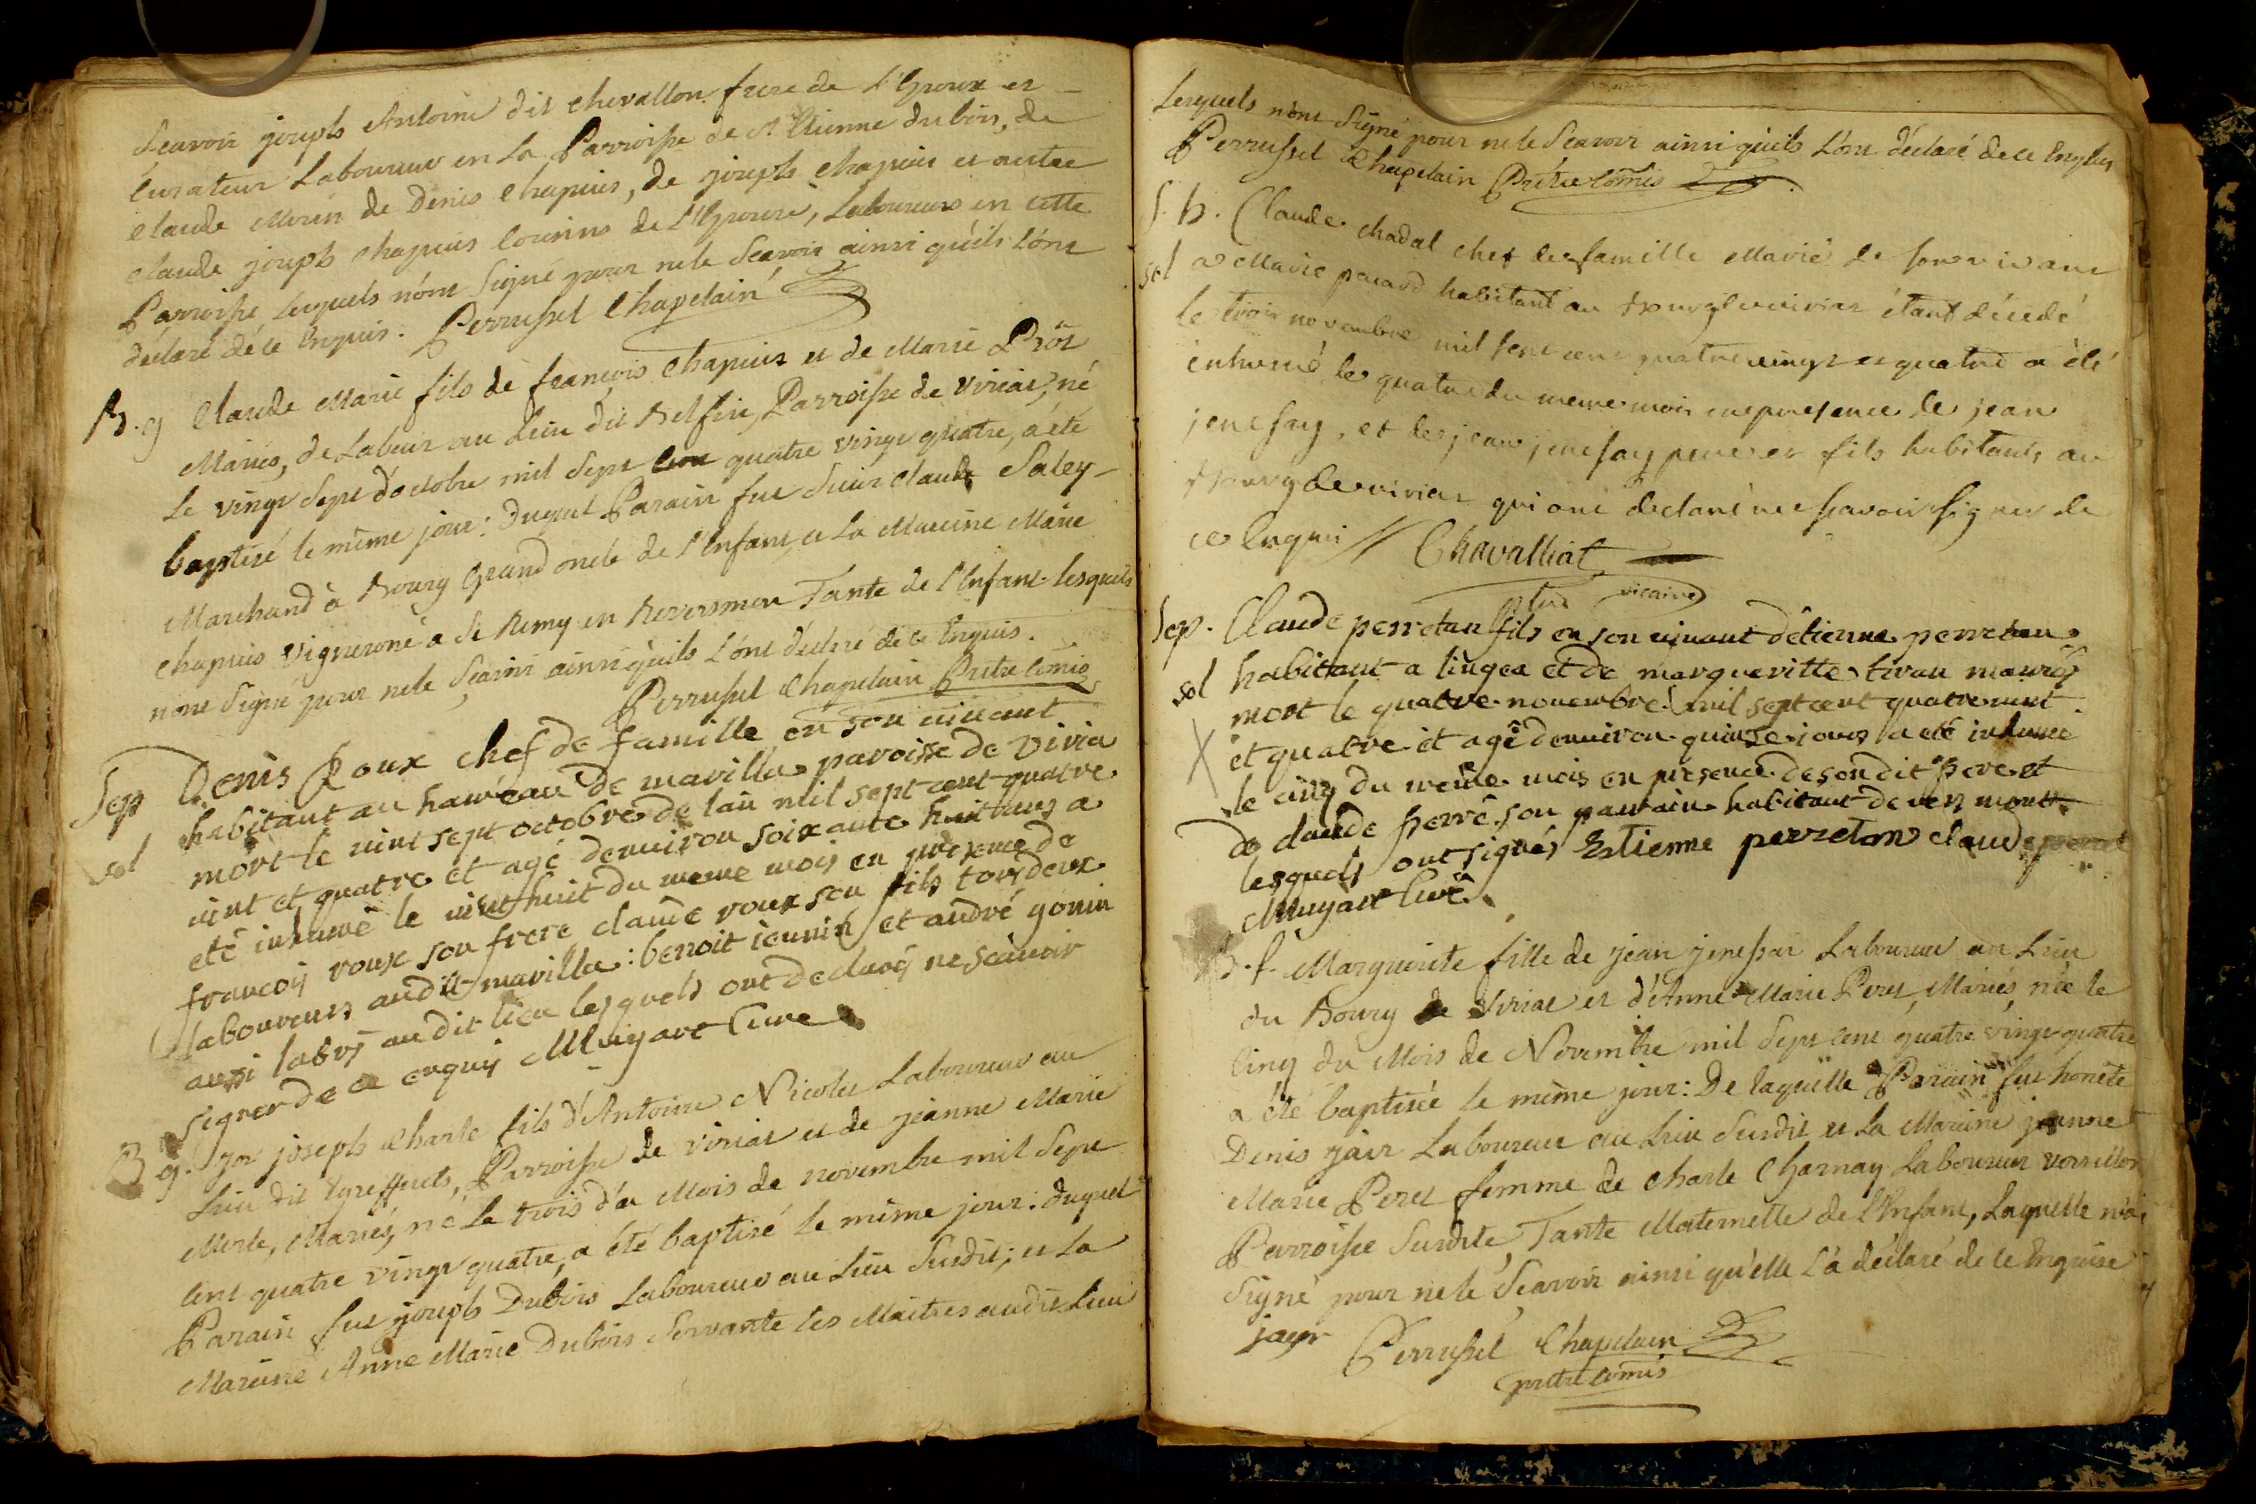 Scavoir joseph Antoine dit chevallon frere de l'Epoux et
Curateur Laboureur en La Parroisse de st Etienne du bois, de
claude Morin de Denis chapuis, de joseph chapuis et autre
claude joseph chapuis Cousins de l'Epouse, Laboureurs en cette
Parroisse Lesquels n'ont Signé pour ne le Scavoir ainsi qu'ils L'ont
déclaré de ce Enquis. Perrussel Chapelain
B. g Claude Marie fils de françois Chapuis et de Marie Prôt
Mariés, de Labeur au Lieu dit , Parroisse de Viriat, né
Le vingt Sept d'octobre mil Sept Cent quatre vingt quatre, a été
baptisé le même jour: Duquel Parain fut Sieur Claude Saley
Marchand à Bourg Grand oncle de l'Enfant et La Maraine Marie
chapuis Vigneronne a St Remy en Revermon Tante de l'Enfant lesquels
n'ont Signé pour ne le Scavoir ainsi qu'ils L'ont déclaré de ce Enquis.
Perrussel Chapelain Prêtre Comis
Sep Denis Roux chef de famille en son vivant
habitant au hameau de mavilla paroisse de Viria
sol mort le vint sept octobre de lan mil sept cent quatre
vint et quatre et agé denviron soixante huit ans a
été inhumé le vint huit du meme mois en presence de
francois roux son frere claude roux son fils tous deux
laboureurs audit mavilla: benoit ieunin et andré gonin
aussi labrs au dit lieu lesquels ont declarés ne scavoir
signer de ce enquis Muyart Curé
B g. joseph Charle fils d'Antoine Nicolet Laboureur au
Lieu dit , Parroisse de Viriat et de jeanne Marie
Merle, Mariés, né Le trois du Mois de novembre mil Sept
Cent quatre vingt quatre, a été baptisé le même jour: duquel
Parain fut joseph Dubois Laboureur au Lieu Susdit; et La
Maraine Anne Marie Dubois Servante les Maitres audit Lieu
Lesquels n'ont Signé pour ne le Scavoir ainsi qu'ils L'ont déclaré de ce Enquis
Perrussel Chapelain Prêtre Comis
S. h. Claude chadal chef de famille Marié de son vivant
sol a Marie habitant au bourg de viriat étant décédé
le trois novembre mil sept cent quatre vingt et quatre a été
inhumé le quatre du meme mois en presence de jean
jenesay, et de jean jenesay pere et fils habitants au
bourg de viriat qui ont declaré ne scavoir signer de
ce Enquis // Chavalliat
vicaire
Sep. Claude perretan fils en son vivant détienne perretan
sol habitant a lingea et de margueritte tivan mariés
mort le quatre novembre mil sept cent quatre vint
X et quatre et agé denviron quinze iours a été inhumé
le cinq du meme mois en presence de son dit pere et
de claude perré son parrain habitant de mont
lesquels ont signés Estienne perreton claude perret
Muyart Curé
B. f. Marguerite fille de jean jenessai Laboureur au Lieu
du Bourg de Viriat et d'Anne Marie Peret Mariés, née le
Cinq du Mois de Novembre mil Sept Cent quatre vingt quatre
a été baptisée le même jour: De laquelle Parain fut honete
Denis jair Laboureur au Lieu Susdit et La Maraine jeanne
Marie Peret femme de Charle Charnay Laboureur
Parroisse Susdite, Tante Maternelle de l'Enfant, Laquelle n'a
Signé pour ne le Scavoir ainsi qu'elle L'a déclaré de ce Enquise
jayr Perrussel Chapelain
prêtre Comis